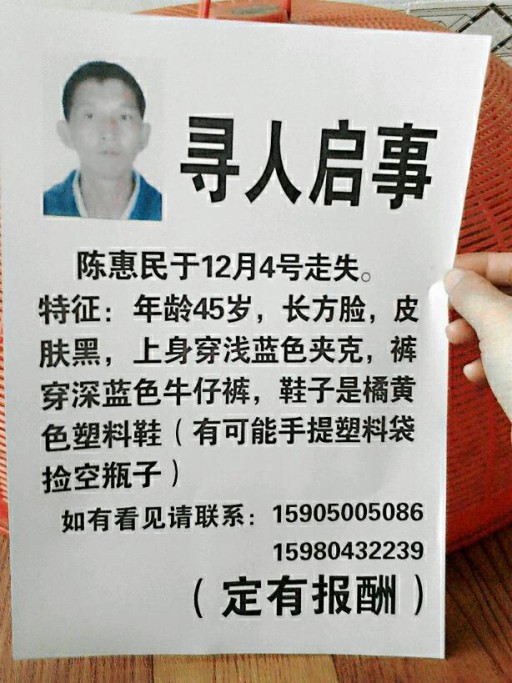 寻人启事
陈惠民于12月4号走失。
特征：年龄45岁，长方脸，皮
肤黑，上身穿浅蓝色夹克，裤
穿深蓝色牛仔裤，鞋子是橘黄
色塑料鞋（有可能手提塑料袋
捡空瓶子）
如有看见请联系：15905005086
15980432239
（定有报酬）